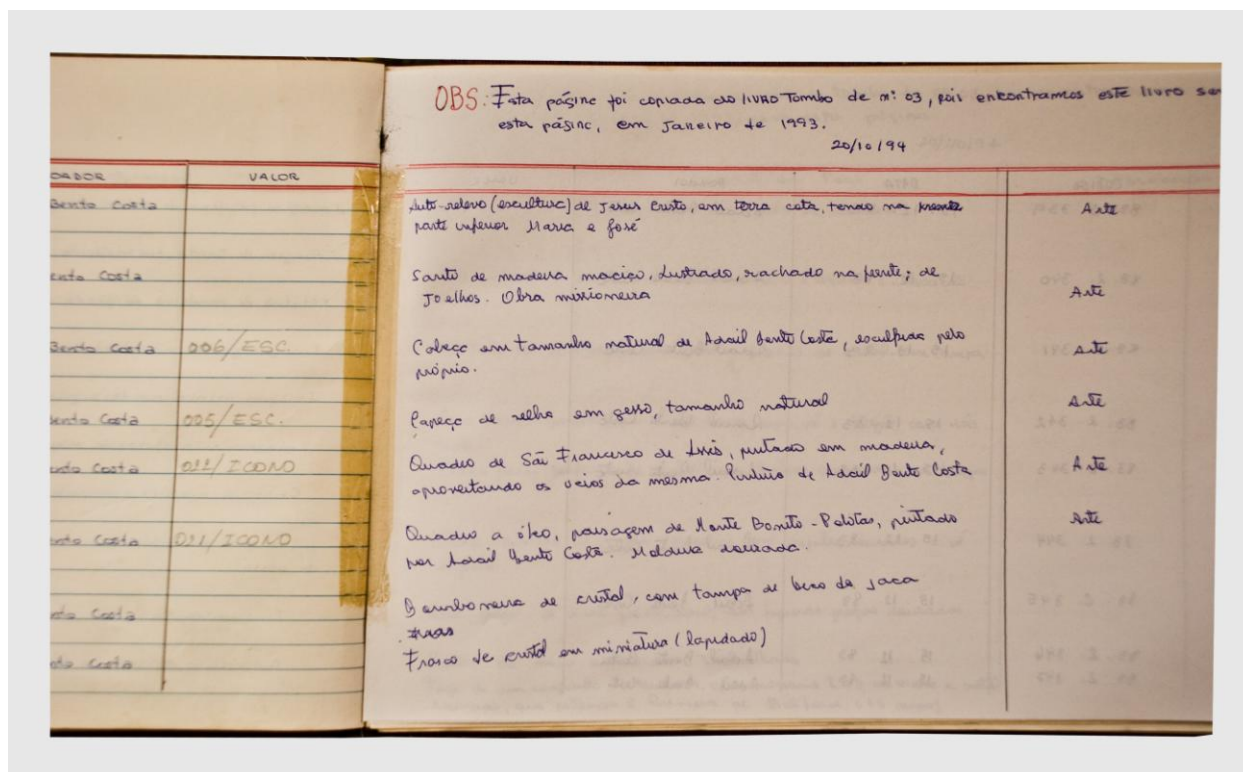 DOADOR VALOR
Bento Costa
Bento Costa
Bento Costa 006/ESC.
Bento Costa 005/ESC.
Bento Costa 022/ICONO
Bento Costa 021/ICONO
Bento Costa
Bento Costa
OBS: Esta página foi copiada do LIVRO Tombo de nº 03, pois encontramos este livro se
esta página, em Janeiro de 1993.
20/10/94
Auto-relevo (escultura) de Jesus Cristo, em terra cota, tendo na frente Arte
parte inferior Maria e José
Santo de madeira maciço, lustrado, rachado na frente; de
Joelhos. Obra missioneira Arte
Cabeça em tamanho natural de Adail Bento Costa, esculpida pelo Arte
próprio.
de velho em gesso, tamanho natural Arte
Quadro de São Francisco de Assis, pintado em madeira,
aproveitando os veios da mesma. Pintura de Adail Bento Costa Arte
Quadro a óleo, paisagem de Monte Bonito - Pelotas, pintado Arte
por Adail Bento Costa. Moldura dourada.
Bomboneira de cristal, com tampa de bico de jaca
Frasco de cristal em miniatura (lapidado)